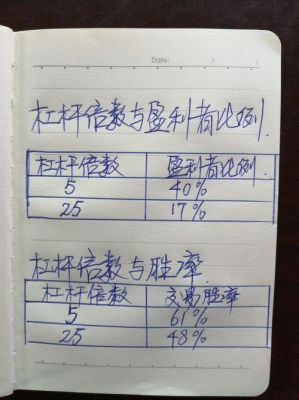 Date: / /
杠杆倍数与盈利者比例.
杠杆倍数 盈利者比例.
5 40%
25 17%
杠杆倍数与胜率.
杠杆倍数 交易胜率
5 61%
25 48%